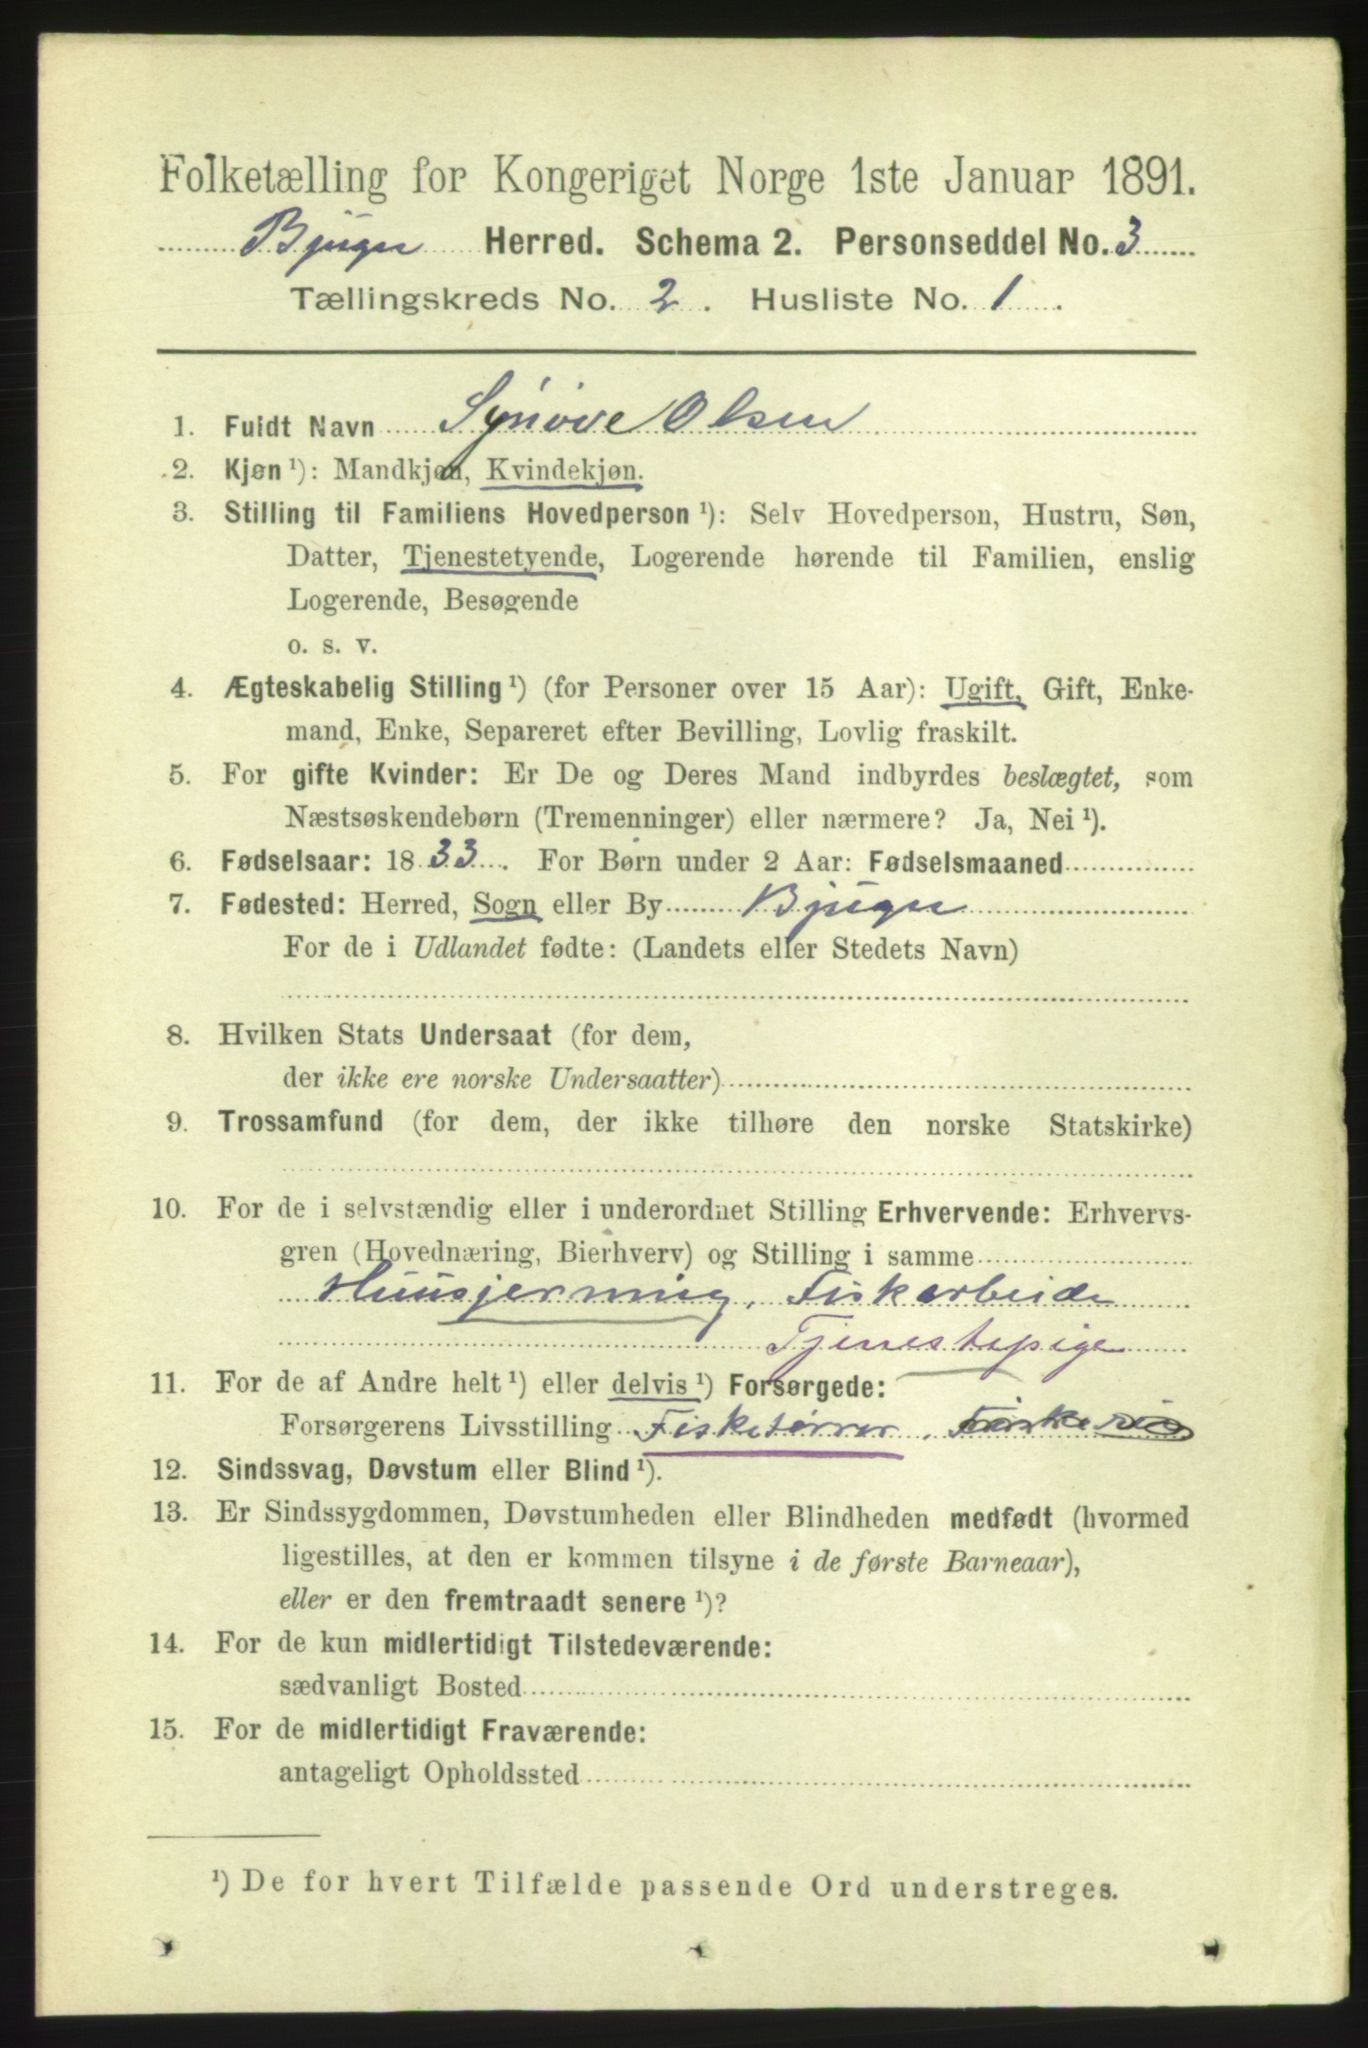 Folketælling for Kongeriget Norge 1ste Januar 1891.
Bjugn Herred. Schema 2. Personseddel No. 3
Tællingskreds No. 2. Husliste No. 1.
1. Fuldt Navn Synöve Olsen
2. Kjøn ¹): Mandkjøn, Kvindekjøn.
3. Stilling til Familiens Hovedperson ¹): Selv Hovedperson, Hustru, Søn,
Datter, Tjenestetyende, Logerende hørende til Familien, enslig
Logerende, Besøgende
o. s. v.
4. Ægteskabelig Stilling ¹) (for Personer over 15 Aar): Ugift, Gift, Enke-
mand, Enke, Separeret efter Bevilling, Lovlig fraskilt.
5. For gifte Kvinder: Er De og Deres Mand indbyrdes beslægtet, som
Næstsøskendebørn (Tremenninger) eller nærmere? Ja, Nei ¹).
6. Fødselsaar: 1833. For Børn under 2 Aar: Fødselsmaaned
7. Fødested: Herred, Sogn eller By Bjugn
For de i Udlandet fødte: (Landets eller Stedets Navn)
8. Hvilken Stats Undersaat (for dem,
der ikke ere norske Undersaatter)
9. Trossamfund (for dem, der ikke tilhøre den norske Statskirke)
10. For de i selvstændig eller i underordnet Stilling Erhvervende: Erhvervs-
gren (Hovednæring, Bierhverv) og Stilling i samme
Huusgjerning, Fiskarbeide
Tjenestepige
11. For de af Andre helt ¹) eller delvis ¹) Forsørgede:
Forsørgerens Livsstilling Fisketörrer,
12. Sindssvag, Døvstum eller Blind ¹).
13. Er Sindssygdommen, Døvstumheden eller Blindheden medfødt (hvormed
ligestilles, at den er kommen tilsyne i de første Barneaar),
eller er den fremtraadt senere ¹)?
14. For de kun midlertidigt Tilstedeværende:
sædvanligt Bosted
15. For de midlertidigt Fraværende:
antageligt Opholdssted
¹) De for hvert Tilfælde passende Ord understreges.